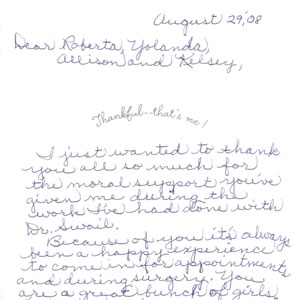 August 29,'08
Dear Roberta, Yolanda,
Allison and Kelsey,
Thankful--that's me!
I just wanted to thank
you all so much for
the moral support you've
given me during the
work I've had done with
Dr. Swail.
Because of you it's always
been a happy experience
to come in for appointments
and during surgery. You
are a great bunch of girls.